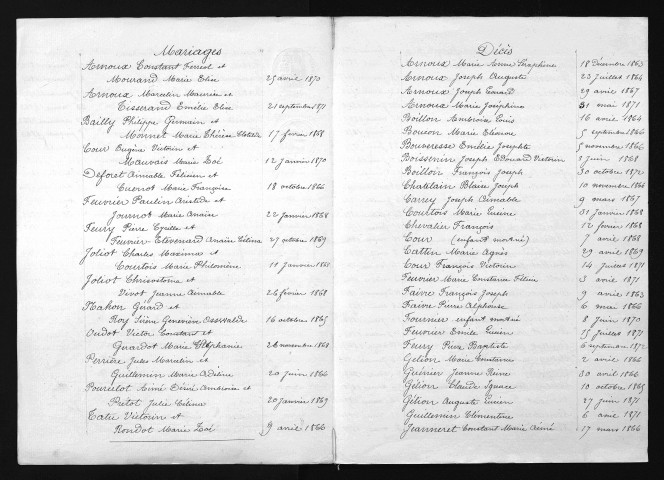 Mariages
Arnoux Constant Ferréol et
Mourand Marie Elise 25 avril 1870
Arnoux Marcelin Maurice et
Tisserand Emélie Elise 21 septembre 1871
Bailly Philippe Germain et
Monnet Marie Thérèse Clotilde 17 février 1868
Cour Eugène Victorin et
Mauvais Marie Zoé 12 janvier 1870
Deforet Aimable Félicien et
Cuenot Marie Françoise 18 octobre 1866
Feuvrier Paulin Aristide et
Journot Marie Anaïse 22 janvier 1868
Feury Pierre et
Feuvrier Etévenard Anaïse Célina 27 octobre 1869
Joliot Charles Maxime et
Courtois Marie Philomène 11 janvier
Joliot Chrisostome et
Vivot Jeanne Aimable 26 février 1868
Mahon Girard et
Roy Geneviève 16 octobre 1865
Oudot Victor Constant et
Girardot Marie Stéphanie 26 novembre 1868
Perrière Jules Marcelin et
Guillemin Marie Adeline 20 juin 1866
Pourcelot Aimé Ambroise et
Pretot Julie Célina 20 janvier 1869
Tatu Victorin et
Rondot Marie Zoé 9 avril 1866
Décès
Arnoux Marie Anne Séraphine 18 Décembre 1863
Arnoux Joseph Auguste 23 juillet 1864
Arnoux Joseph Edouard 29 avril 1867
Arnoux Marie Joséphine 31 mai 1871
Boillon Ambroise Louis 16 avril 1864
Bouçon Marie Eléonore 5 septembre 1866
Bouveresse Emélie Josephte 5 novembre 1866
Boissenin Joseph Edouard Victorin 3 juin 1868
Boillon François Joseph 30 octobre 1872
Chatelain Blaise Joseph 10 novembre 1868
Carrey Joseph Aimable 9 mars 1867
Courtois Marie 31 janvier 1868
Chevalier François 12 février 1868
Cour (enfant mort né) 7 avril 1868
Cattin Marie Agnès 29 avril 1869
Cour François Victorin 14 juillet 1871
Feuvrier Marie Constance Féline 3 avril 1871
Faivre François Joseph 9 avril 1863
Faivre Pierre Alphonse 6 mai 1866
Fournier enfant mort né 8 juin 1870
Feuvrier Emile Lucien 25 juillet 1871
Feury Pierre Baptiste 6 septembre 1872
Gélion Marie Constance 2 avril 1866
Guérier Jeanne Reine 30 avril 1866
Gélion Claude Ignace 10 octobre 1865
Gélion Auguste Lucien 27 juin 1871
Guillemin Clémentine 6 1871
Jeanneret Constant Marie Aimé 17 mars 1866